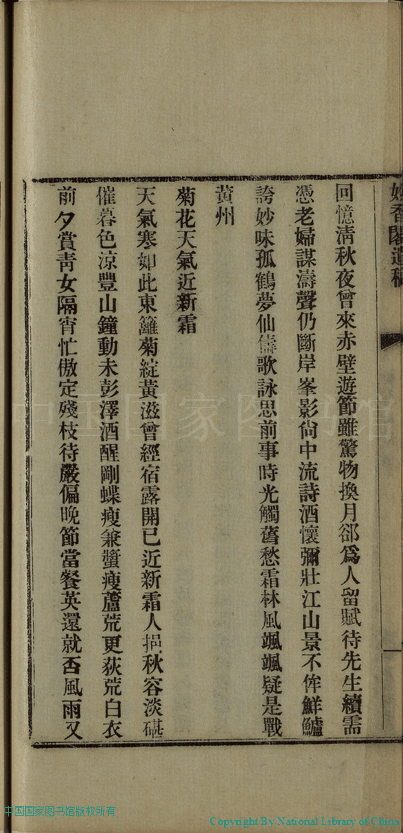 妙香閣遺稿
回憶清秋夜曾來赤壁遊節雖驚物換月卻爲人留賦待先生續需
憑老婦謀濤聲仍斷岸峯影尙中流詩酒懷彌壯江山景不侔鮮鱸
誇妙味孤鶴夢仙儔歌詠思前事時光觸舊愁霜林風颯颯疑是戰
黃州
菊花天氣近新霜
天氣寒如此東籬菊綻黃滋曾經宿露開已近新霜人挹秋容淡碪
催暮色涼豐山鐘動未彭澤酒醒剛蝶瘦兼蟹瘦蘆荒更荻荒白衣
前夕賞靑女隔宵忙傲定殘枝待嚴偏晚節當餐英還就否風雨又
中国国家图书馆
中国国家图书馆版权所有
Copyright By National Library of China